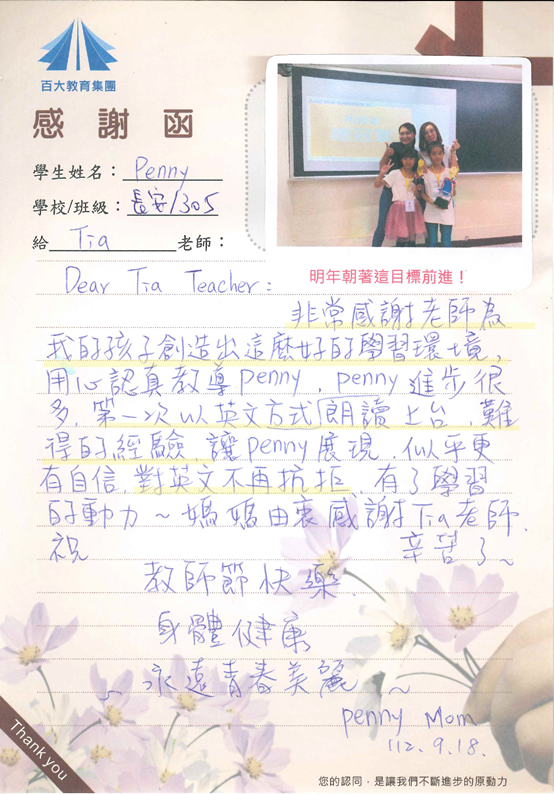 百大教育集團
感謝函
學生姓名：Penny
學校/班級：長安/305
給 Tia 老師：
明年朝著這目標前進！
Dear Tia Teacher：
非常感謝老師為
我的孩子創造出這麼好的學習環境，
用心認真教導Penny，penny進步很
多，第一次以英文方式朗讀上台，難
得的經驗，讓penny展現，似乎更
有自信，對英文不再抗拒、有了學習
的動力～媽媽由衷感謝Tia老師，
祝 辛苦了～
教師節快樂
身體健康
～永遠青春美麗～
penny Mom
112.9.18.
Thank you
您的認同，是讓我們不斷進步的原動力